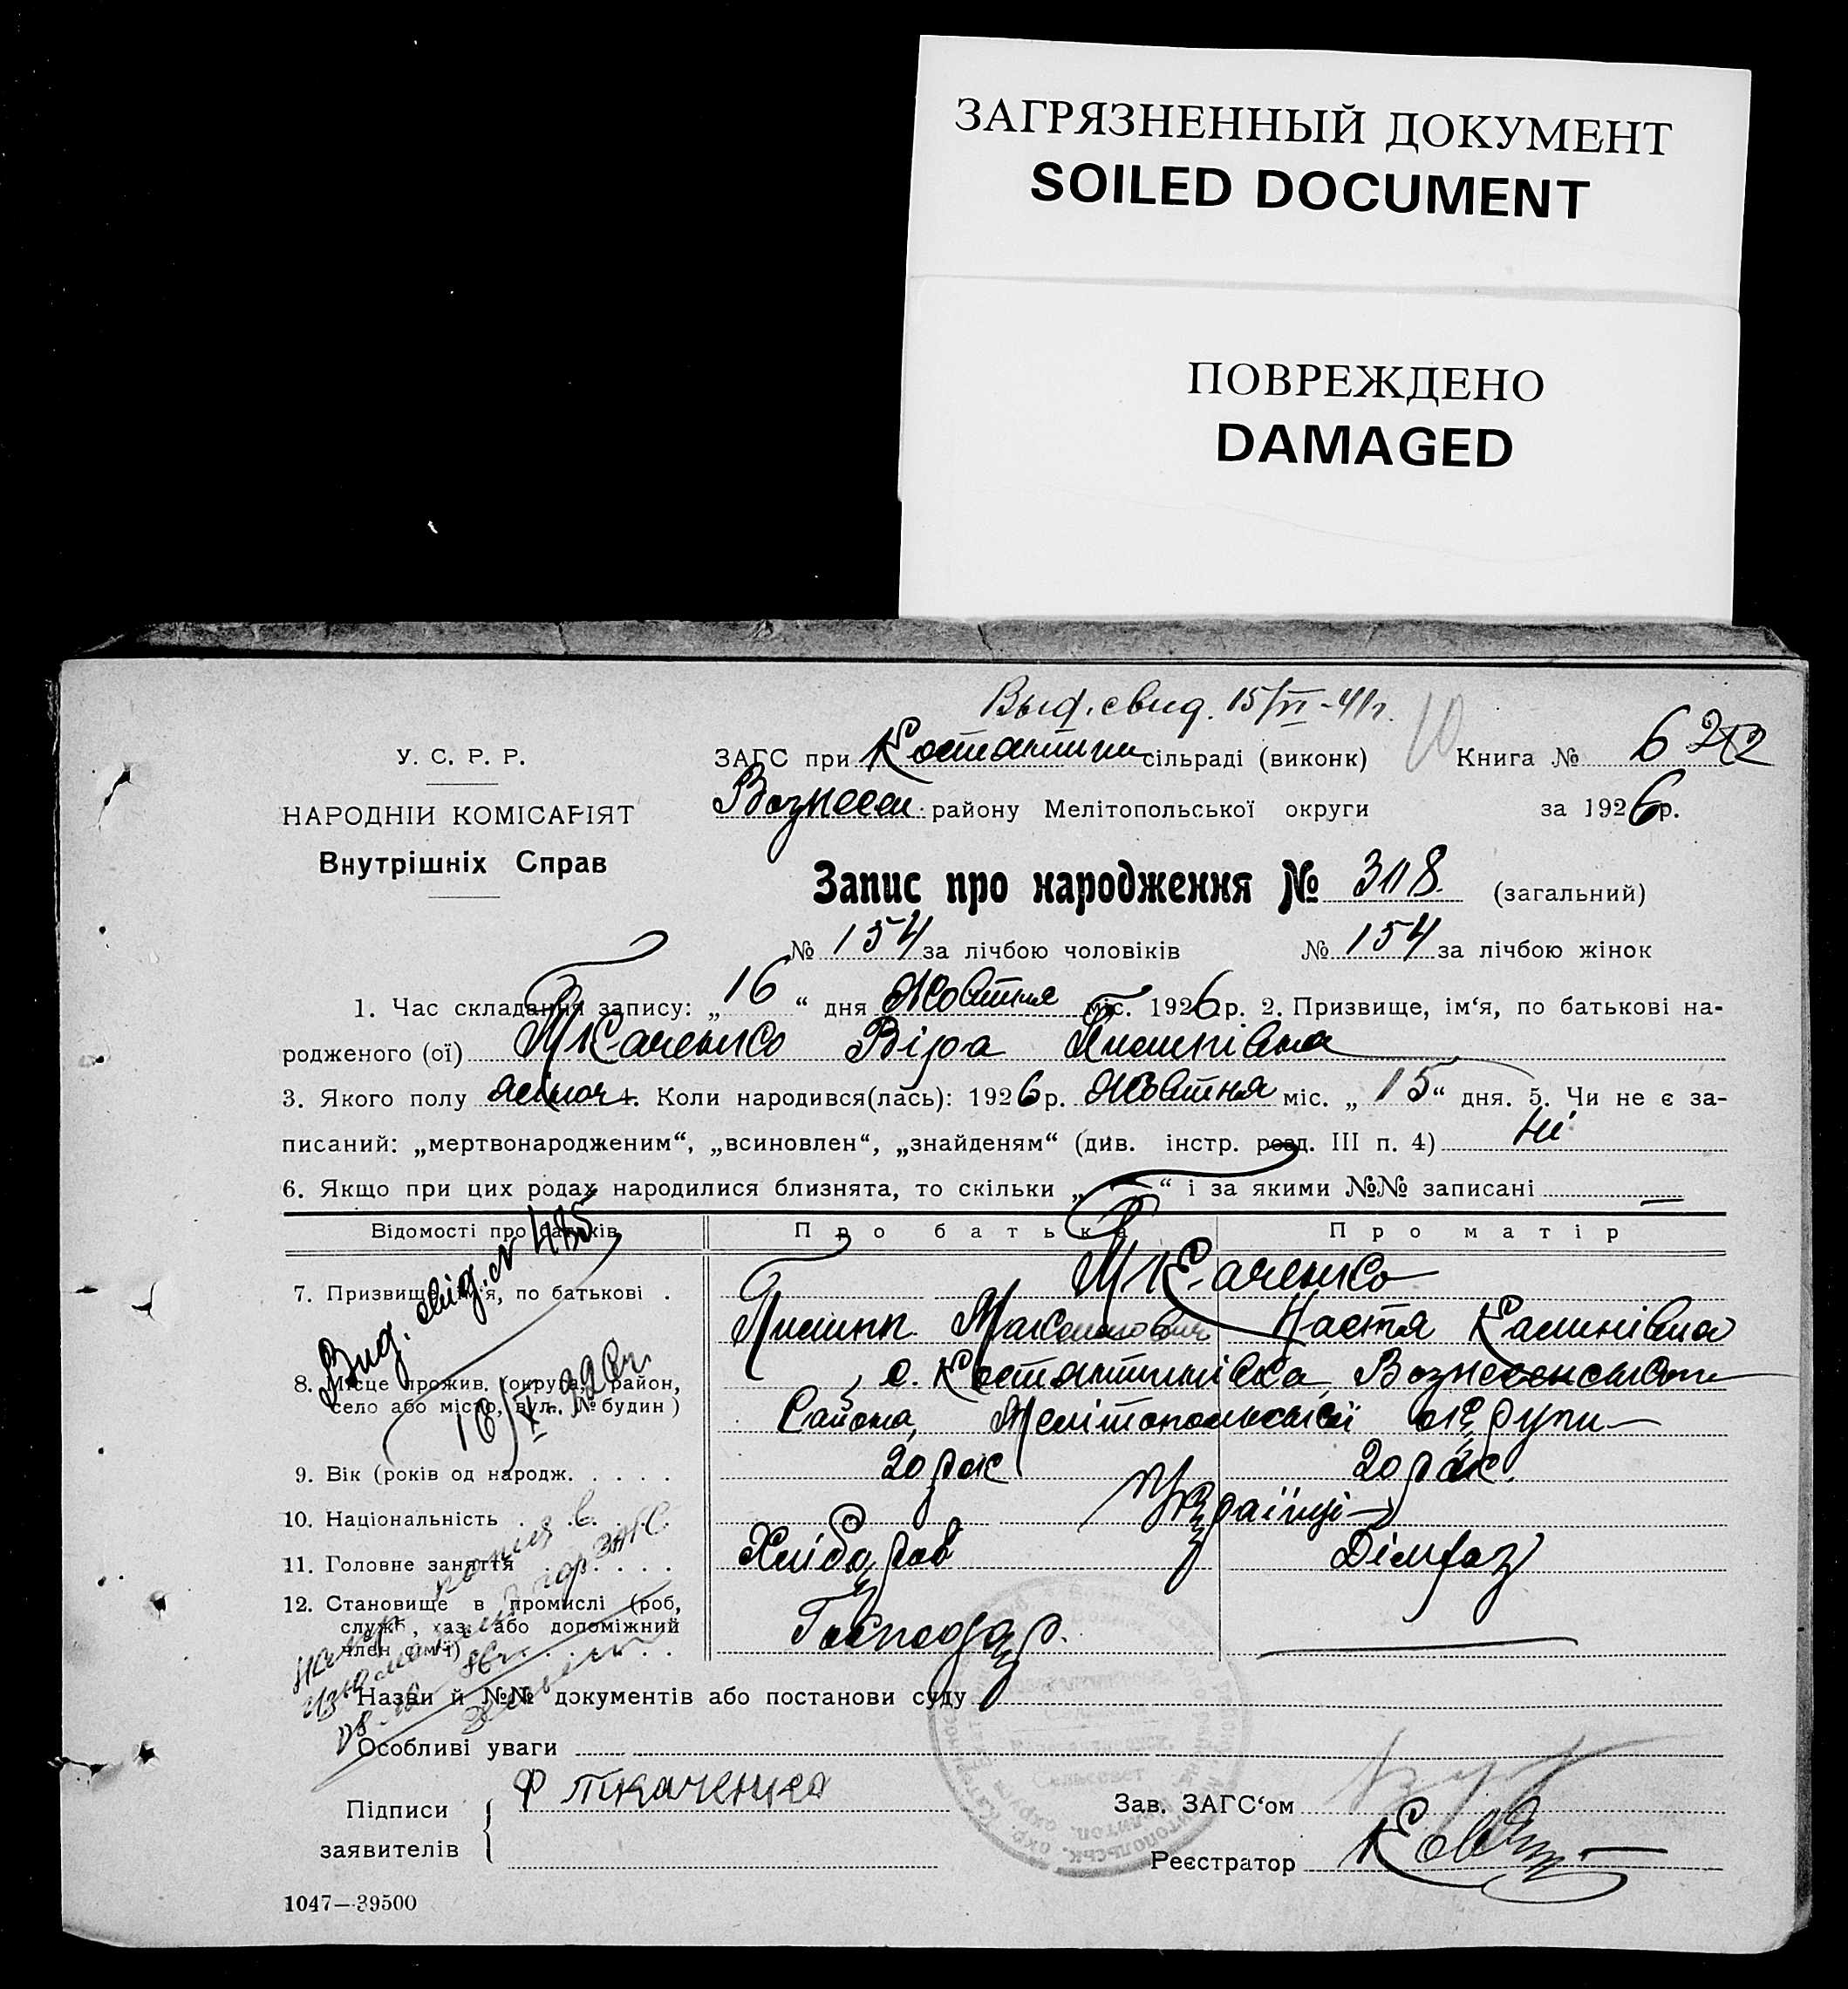 ЗАГРЯЗНЕННЫЙ ДОКУМЕНТ
SOILED DOCUMENT
ПОВРЕЖДЕНО
DAMAGED
Выд. свид. 15/VI-41г.
10
У. С. Р. Р.
ЗАГС при Костантин сільраді (виконк)
Книга № 6 212
НАРОДНІЙ КОМІСАРІЯТ
Вознесен. району Мелітопольської округи
за 1926р.
Внутрішніх Справ
Запис про народження № 308 (загальний)
№ 154 за лічбою чоловіків № 154 за лічбою жінок
1. Час складання запису: „16“ дня Жовтня міс. 1926р. 2. Призвище, ім‘я, по батькові на-
родженого (ої) Ткаченко Віра
3. Якого полу жіноч 4. Коли народився(лась): 1926р. Жовтня міс. „15“ дня. 5. Чи не є за-
писаний: „мертвонародженим“, „всиновлен“, „знайденям“ (див. інстр. розд. III п. 4) ні
6. Якщо при цих родах народилися близнята, то скільки „—“ і за якими №№ записані —
Відомості про батьків
Про батька
Про матір
Вид. свід. N 485
18/X 1926р.
7. Призвище, ім‘я, по батькові .
Ткаченко
Настя
8. Місце прожив. (округа, район,
село або місто, вул. № будин)
с. Костантинівка, Вознесенського
району, Мелітопольської округи
9. Вік (років од народж. . . . .
20 рок
20 рок.
10. Національність . . .
Українці
11. Головне заняття . . . .
Хлібороб
Дімгаз
12. Становище в промислі (роб,
служб, хаз. або допоміжний
член сім‘ї) . . . . .
Господар.
Назви й №№ документів або постанови суду
Особливі уваги
Підписи
заявителів
Ф ткаченко
Зав. ЗАГС‘ом
Реєстратор
1047—39500